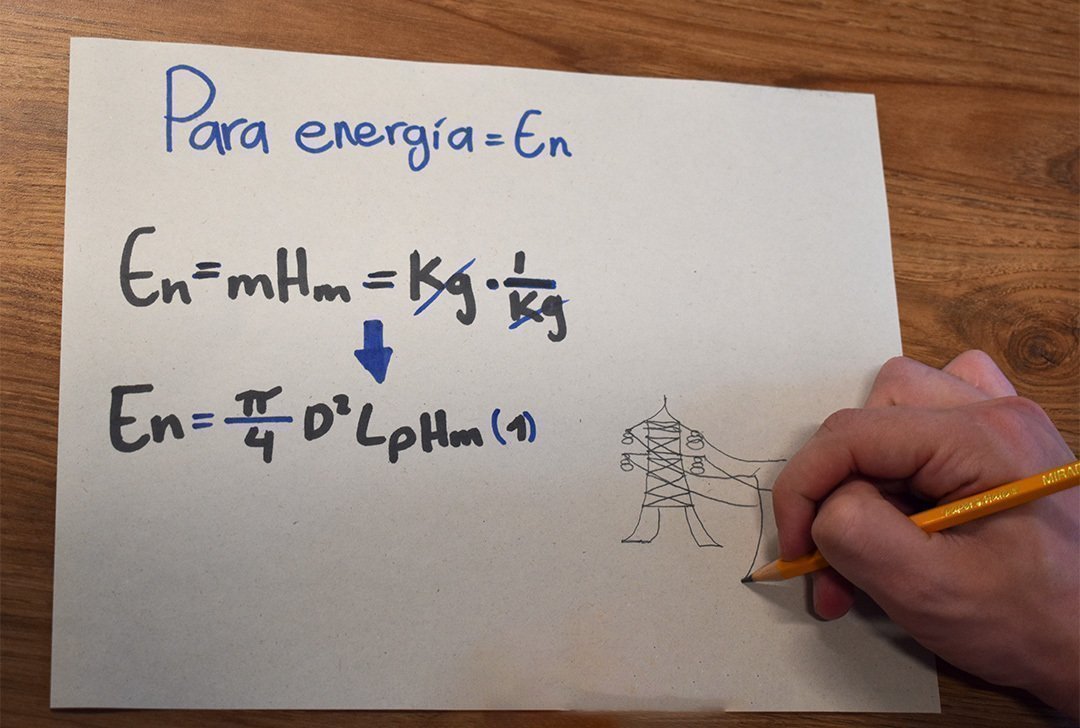 Para energía = En
En = mHm = Kg · 1/Kg
En = π/4 D² LρHm (1)
MIRA